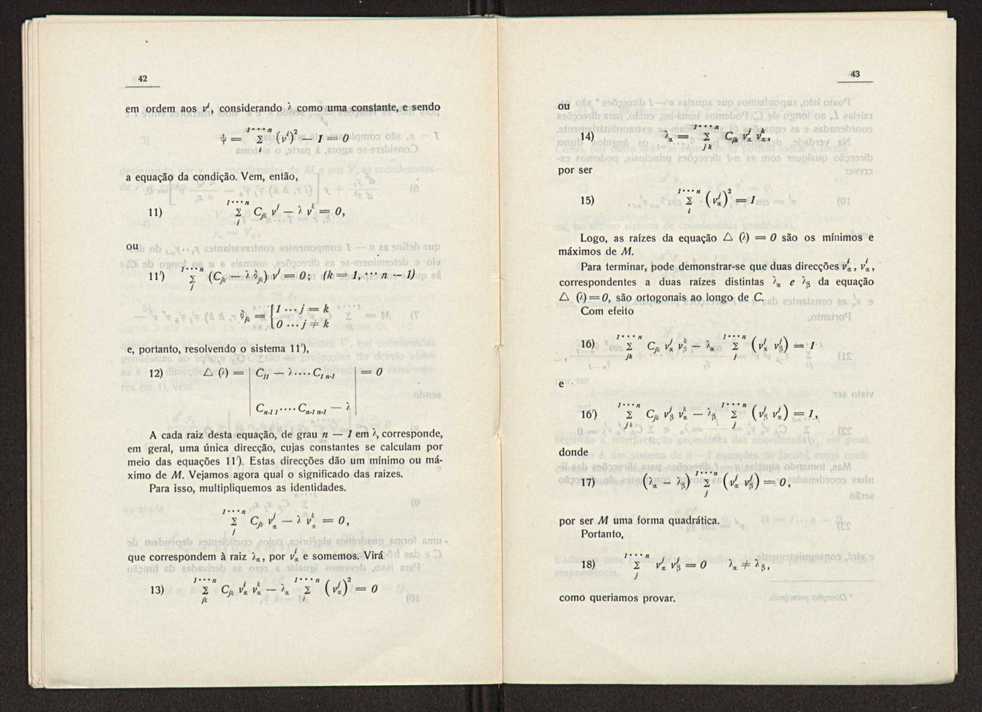 42
em ordem aos νʲ, considerando λ como uma constante, e sendo
ψ = Σ_i^{1····n} (νⁱ)² — 1 = 0
a equação da condição. Vem, então,
11) Σ_j^{1····n} C_{jk} νʲ — λ νᵏ = 0,
ou
11') Σ_j^{1····n} (C_{jk} — λ δ_{jk}) νʲ = 0; (k = 1, ··· n — 1)
δ_{jk} = { 1 ··· j = k
0 ··· j ≠ k
e, portanto, resolvendo o sistema 11'),
12) △ (λ) = | C_{11} — λ ···· C_{1 n-1} | = 0
C_{n-1 1} ···· C_{n-1 n-1} — λ
A cada raiz desta equação, de grau n — 1 em λ, corresponde,
em geral, uma única direcção, cujas constantes se calculam por
meio das equações 11'). Estas direcções dão um mínimo ou má-
ximo de M. Vejamos agora qual o significado das raízes.
Para isso, multipliquemos as identidades.
Σ_j^{1····n} C_{jk} ν_α^j — λ ν_α^k = 0,
que correspondem à raiz λ_α, por ν_α^k e somemos. Virá
13) Σ_{jk}^{1····n} C_{jk} ν_α^j ν_α^k — λ_α Σ_i^{1····n} (ν_α^i)² = 0
43
ou
14) λ_α = Σ_{jk}^{1····n} C_{jk} ν_α^j ν_α^k,
por ser
15) Σ_i^{1····n} (ν_α^i)² = 1
Logo, as raízes da equação △ (λ) = 0 são os mínimos e
máximos de M.
Para terminar, pode demonstrar-se que duas direcções ν_α^i, ν_α^i,
correspondentes a duas raízes distintas λ_α e λ_β da equação
△ (λ) = 0, são ortogonais ao longo de C.
Com efeito
16) Σ_{jk}^{1····n} C_{jk} ν_α^j ν_β^k — λ_α Σ_j^{1····n} (ν_α^j ν_β^j) = 1
e
16') Σ_{jk}^{1····n} C_{jk} ν_β^j ν_α^k — λ_β Σ_j^{1····n} (ν_β^j ν_α^j) = 1,
donde
17) (λ_α — λ_β) Σ_j^{1····n} (ν_α^j ν_β^j) = 0,
por ser M uma forma quadrática.
Portanto,
18) Σ_j^{1····n} ν_α^j ν_β^j = 0 λ_α ≠ λ_β,
como queriamos provar.